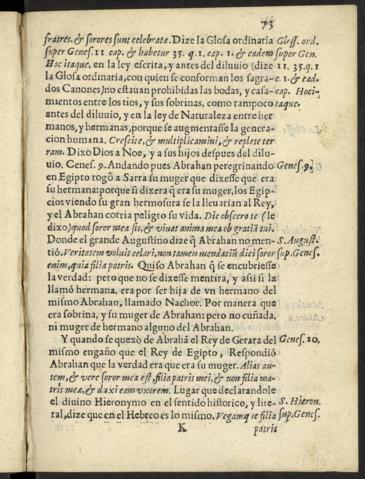 73
fratres. & sorores sunt celebratæ. Dize la Glosa ordinaria Gloss. ord.
super Genes. 11. cap. & habetur 35. q. 1. cap. 1. & eadem super Gen.
Hoc itaque, en la ley escrita, y antes del diluuio (dize 11. 35. q. 1
la Glosa ordinaria, con quien se conforman los sagra- c. 1. & ead.
dos Canones) no estauan prohibidas las bodas, y casa- cap. Hoc i-
mientos entre los tios, y sus sobrinas, como tampoco taque.
antes del diluuio, y en la ley de Naturaleza entre her
manos, y hermanas, porque se augmentasse la genera-
cion humana. Crescite, & multiplicamini, & replete ter
ram. Dixo Dios a Noe, y a sus hijos despues del dilu-
uio. Genes. 9. Andando pues Abrahan peregrinando Genes. 9.
en Egipto rogò a Sarra su muger que dixesse que era
su hermana: porque si dixera q̃ era su muger, los Egip-
cios viendo su gran hermosura se la lleuarian al Rey,
y el Abrahan corria peligro su vida. Dic obsecro te (le
dixo) quod soror mea sis, & viuat anima mea ob gratiã tui.
Donde el grande Augustino dize q̃ Abrahan no men- S. Augusti.
tiò. Veritatem voluit celari, non tamen mendatiũ dici soror sup. Genes.
enim, quia filia patris. Quiso Abrahan q̃ se encubriesse
la verdad: pero que no se dixesse mentira, y asi si la
llamó hermana, era por ser hija de vn hermano del
mismo Abrahan, llamado Nachor. Por manera que
era sobrina, y su muger de Abrahan: pero no cuñada,
ni muger de hermano alguno del Abrahan.
Y quando se quexò de Abrahã el Rey de Gerara del Genes. 20.
mismo engaño que el Rey de Egipto, Respondiò
Abrahan que la verdad era que era su muger. Alias au-
tem, & vere soror mea est, filia patris mei, & non filia ma-
tris meæ, & duxi eam vxorem. Lugar que declarandole
el diuino Hieronymo en el sentido historico, y lite- S. Hieron.
ral, dize que en el Hebreo es lo mismo. Vegamq̃ se filia sup. Genes.
K patris